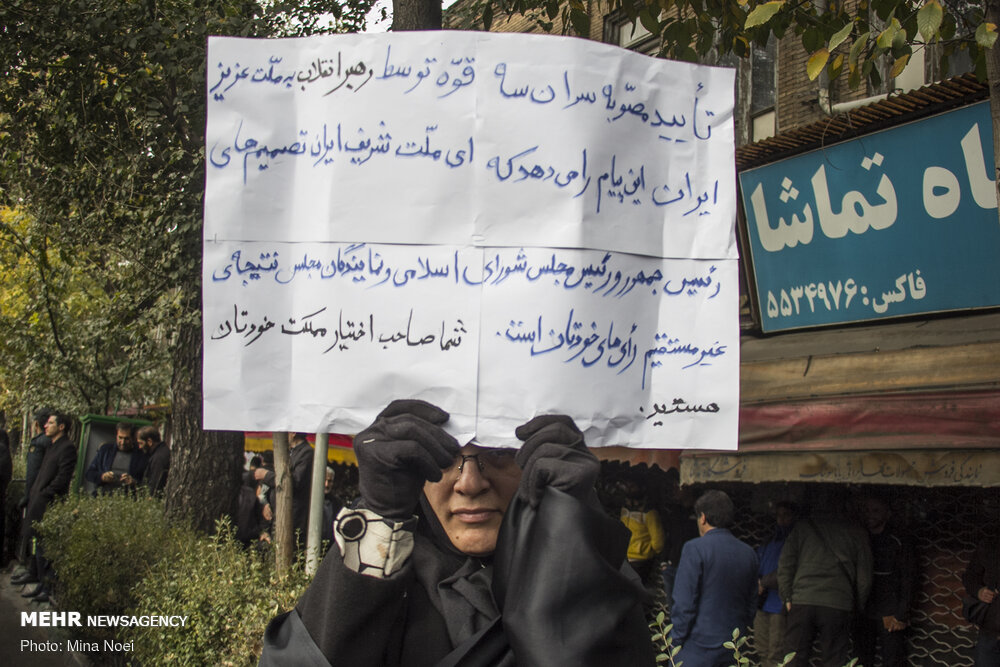 تأیید مصوّبه سران سه قوّه توسط رهبر انقلاب به ملّت عزیز
ایران این پیام را می دهد که ای ملّت شریف ایران تصمیم های
رئیس جمهور و رئیس مجلس شورای اسلامی و نمایندگان مجلس نتیجه‌ی
غیر مستقیم رأی های خودتان است. شما صاحب اختیار مملکت خودتان
هستید.
اه تماشا
فاکس: ۵۵۳۴۹۷۶
MEHR NEWSAGENCY
Photo: Mina Noei